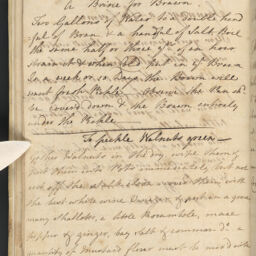 A Brine for Brawn
Two Gallons of Water to one hand
ful of Bran & a handful of Salt Boil
the same half or three qrs of an hour
strain it & when cold put in yr Brawn
In a week or 10 Days the Brawn will
want fresh Pickle. Observe the Pan sh'd
be cover'd down & the Brawn entirely
under the Pickle.
To pickle Walnuts green
Gather Walnuts in the dry, wipe them &
put them into Pots immediately, but not
the best white wine Vinegar, & put in a good
many shallots, a little Horseradish, mace
pepper & ginger, bay Salt & common do. a
quantity of Mustard flour must be mix'd with